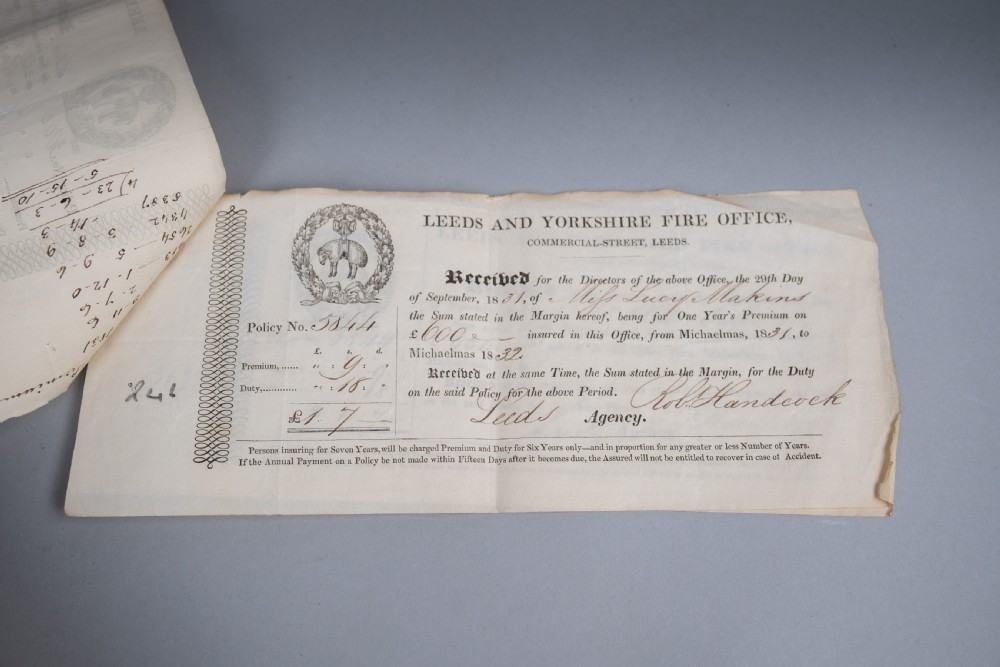 LEEDS AND YORKSHIRE FIRE OFFICE,
COMMERCIAL-STREET, LEEDS.
Received for the Directors of the above Office, the 29th Day
of September, 1831, of Miss Lucy Makins
the Sum stated in the Margin hereof, being for One Year's Premium on
£ 600 insured in this Office, from Michaelmas, 1831, to
Michaelmas 1832.
Received at the same Time, the Sum stated in the Margin, for the Duty
on the said Policy for the above Period. Robt Handcock
Leeds Agency.
Policy No. 5844
£. s. d.
Premium, ...... " : 9 : "
Duty, ............ " : 18 : "
£ 1. 7
Persons insuring for Seven Years, will be charged Premium and Duty for Six Years only—and in proportion for any greater or less Number of Years.
If the Annual Payment on a Policy be not made within Fifteen Days after it becomes due, the Assured will not be entitled to recover in case of Accident.
5-15-10
4) 23-3
6-3
14-3
5387
4342
3654